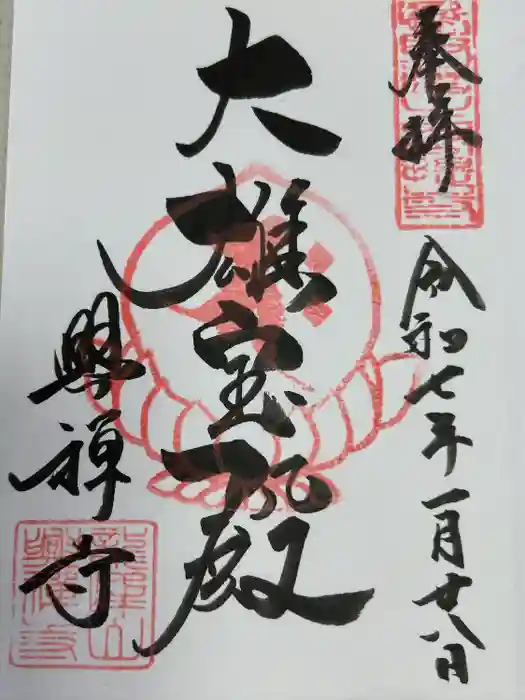 奉拝
令和七年一月廿八日
大雄宝殿
興禅寺